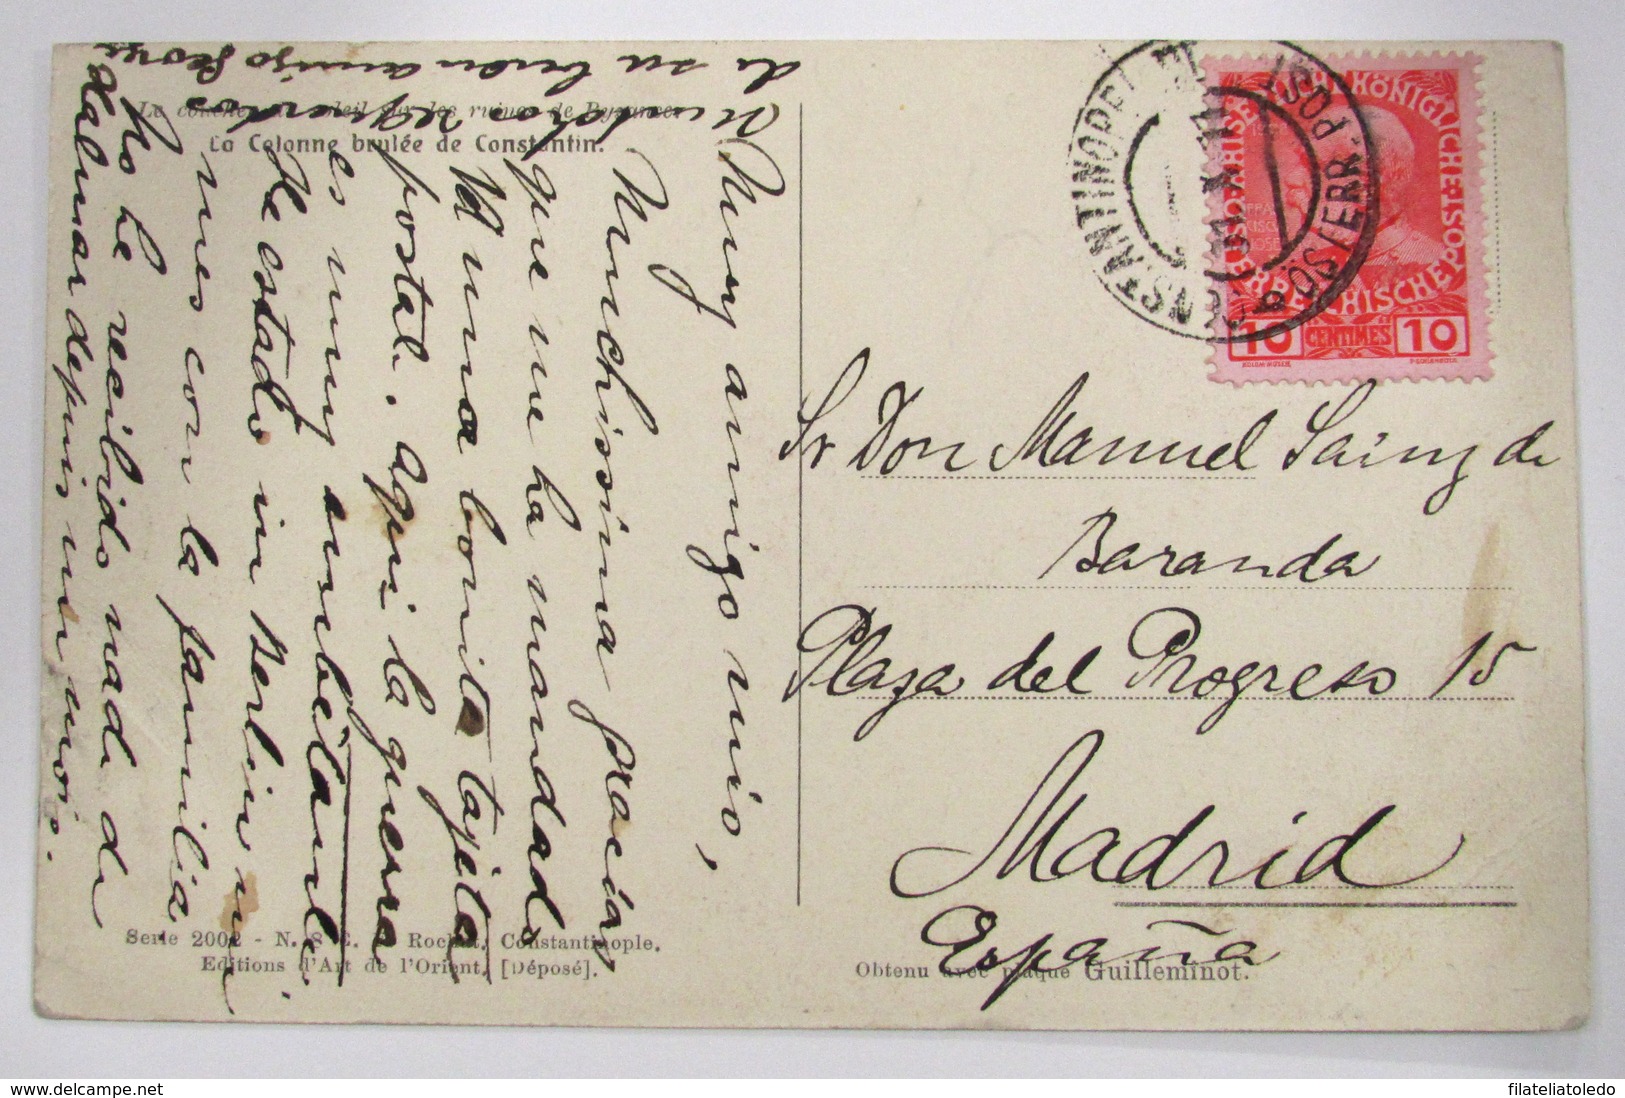 Le coucher du soleil sur les ruines de Byzance
La Colonne brulée de Constantin.
Muy amigo mio,
Muchissima gracias
que me ha mandado
Vd una bonita tajeta
postal. Aqui la guerra
es muy
He estado in Berlin
mes con la familia
ho he recibido nada de
de su buen amigo
Serie 2002 - N. 8 E. F. Rochat, Constantinople.
Editions d'Art de l'Orient, [Déposé].
Obtenu avec plaque Guilleminot.
Sr Don Manuel Sainz de
Baranda
Plaza del Progreso 15
Madrid
España
KAISERLICH KÖNIGLICHE
ÖSTERREICHISCHE POST
10 CENTIMES 10
CONSTANTINOPEL
ÖSTERR. POST
filateliatoledo
www.delcampe.net